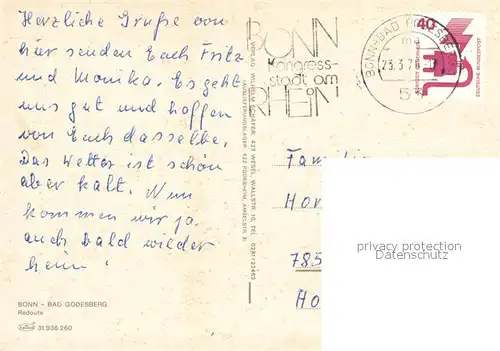 Herzliche Grüße von
hier senden Euch Fritz
und Monika. Es geht
uns gut und hoffen
von Euch dasselbe.
Das Wetter ist schön
aber kalt. Nun
kommen wir ja
auch bald wieder
heim!
BONN - BAD GODESBERG
Redoute
31.936 260
VERLAG WILHELM SCHÄFER, 423 WESEL, WALLSTR. 10, TEL. 0281/22462
BONN
Kongress-
stadt am
RHEIN
BONN-BAD GODESBERG
23.3.7
53
40
DEUTSCHE BUNDESPOST
Famil
Hor
785
Ho
privacy protection
watermark